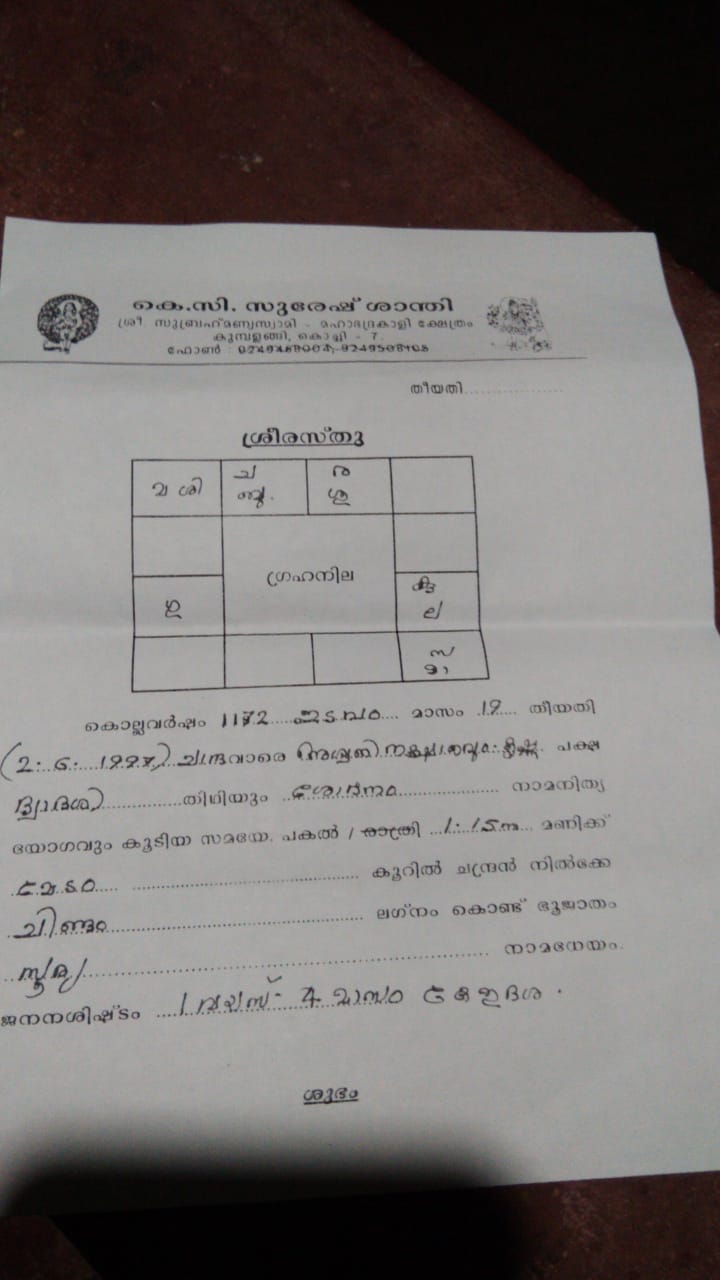 കെ.സി. സുരേഷ് ശാന്തി
ശ്രീ സുബ്രഹ്മണ്യസ്വാമി - മഹാഭദ്രകാളി ക്ഷേത്രം
കുമ്പളങ്ങി, കൊച്ചി - 7.
ഫോൺ :
തീയതി....................
ശ്രീരസ്തു
ശി ച ര
ബു ശു
ഗ്രഹനില
കു
ല
മാ
കൊല്ലവർഷം 1172 ഇടവം മാസം 19 തീയതി
(2. 6. 1997) ചന്ദ്രവാരെ അശ്വതി പക്ഷ
ദ്വാദശി തിഥിയും ശോഭനം നാമനിത്യ
യോഗവും കൂടിയ സമയേ. പകൽ / രാത്രി 1.15 ന് മണിക്ക്
മേടം കൂറിൽ ചന്ദ്രൻ നിൽക്കേ
ചിങ്ങം ലഗ്നം കൊണ്ട് ഭൂജാതം
സൂര്യ നാമധേയം.
ജനനശിഷ്ടം 1 വയസ് 4 മാസം
ശുഭം